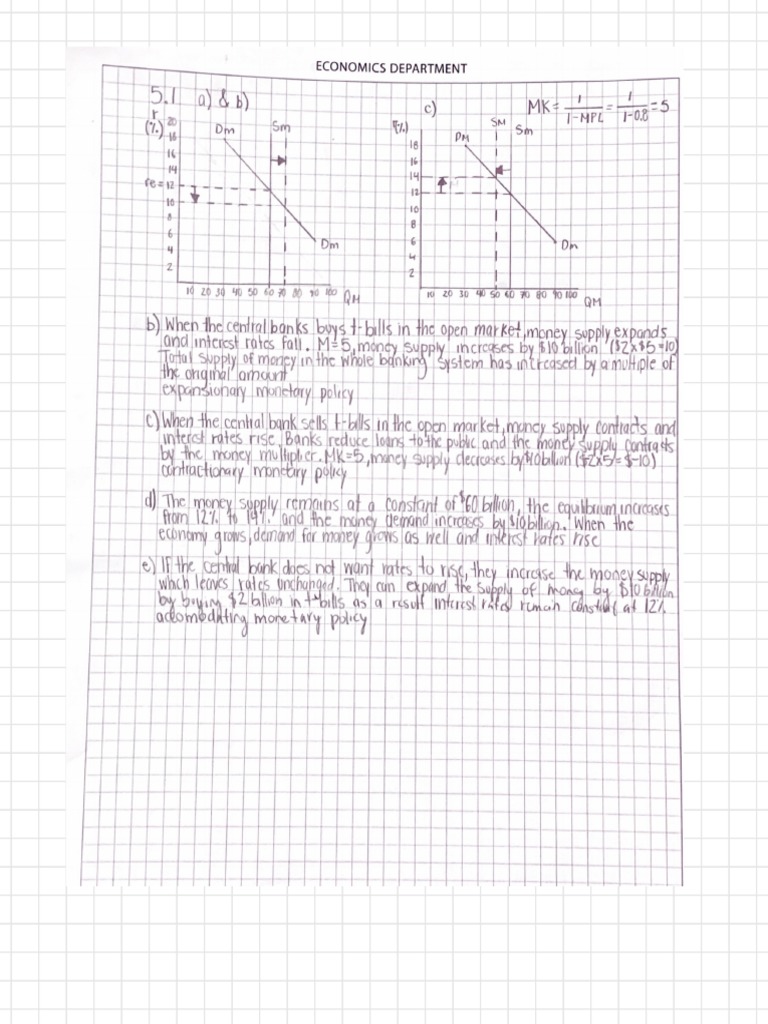 ECONOMICS DEPARTMENT
5.1 a) & b)
r
(%)
20
18
16
14
re=12
10
8
6
4
2
Dm
Sm
Dm
10 20 30 40 50 60 70 80 90 100 QM
c)
MK= 1/1-MPL = 1/1-0.8 =5
(%)
18
16
14
12
10
8
6
4
2
DM
SM
Sm
Dm
10 20 30 40 50 60 70 80 90 100 QM
b) When the central banks buys t-bills in the open market, money supply expands
and interest rates fall. M=5, money supply increases by $10 billion ($2x$5=10)
Total supply of money in the whole banking system has increased by a multiple of
the original amount
expansionary monetary policy
c) When the central bank sells t-bills in the open market, money supply contracts and
interest rates rise. Banks reduce loans to the public and the money supply contracts
by the money multiplier. MK=5, money supply decreases by $10 billion ($2x5=$-10)
contractionary monetary policy
d) The money supply remains at a constant of $60 billion, the equilibrium increases
from 12% to 14% and the money demand increases by $10 billion. When the
economy grows, demand for money grows as well and interest rates rise
e) If the central bank does not want rates to rise, they increase the money supply
which leaves rates unchanged. They can expand the supply of money by $10 billion
by buying $2 billion in t-bills as a result interest rates remain constant at 12%
accomodating monetary policy